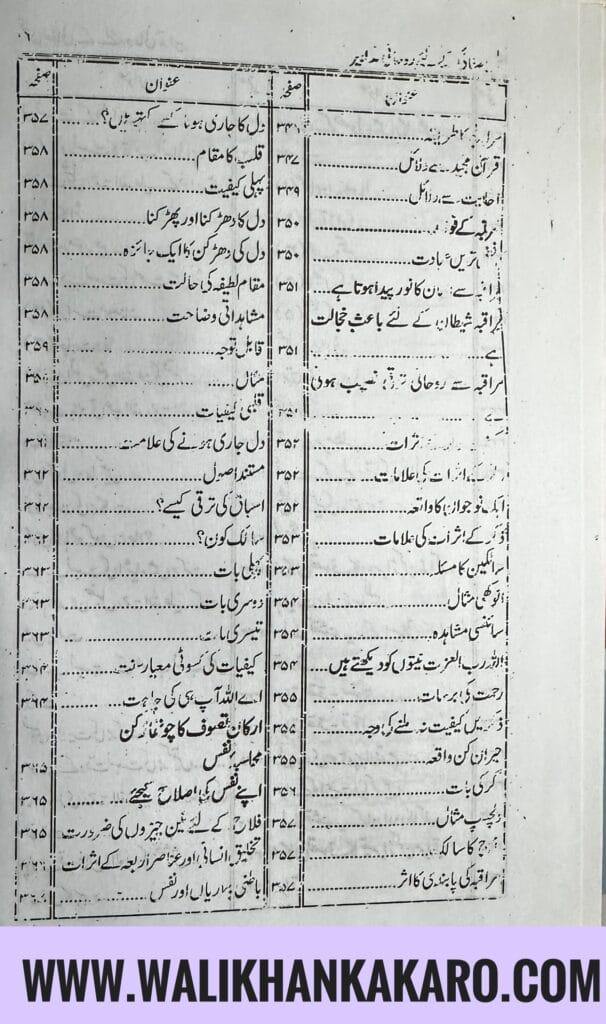 عنوان صفحہ
مراقبہ کا طریقہ ۳۴۶
قرآن مجید سے دلائل ۳۴۷
احادیث سے دلائل ۳۴۹
مراقبہ کے ۳۵۰
۳۵۰
سے کا نور پیدا ہوتا ہے ۳۵۱
مراقبہ شیطان کے لئے باعث خجالت
ہے ۳۵۱
مراقبہ سے روحانی ترقی نصیب ہوتی
۳۵۱
۳۵۲
اثرات کی علامات ۳۵۲
ایک نوجوان کا واقعہ ۳۵۲
ذکر کے اثرات کی علامات ۳۵۳
سالکین کا مسئلہ ۳۵۳
انوکھی مثال ۳۵۴
سائنسی مشاہدہ ۳۵۴
اللہ رب العزت نیتوں کو دیکھتے ہیں ۳۵۴
رحمت کی برسات ۳۵۵
ذکر میں کیفیت نہ ملنے کی وجہ ۳۵۵
حیران کن واقعہ ۳۵۵
کی بات ۳۵۶
دلچسپ مثال ۳۵۷
کا سالک ۳۵۷
مراقبہ کی پابندی کا اثر ۳۵۷
عنوان صفحہ
دل کا جاری ہونا کسے کہتے ہیں؟ ۳۵۷
قلب کا مقام ۳۵۸
پہلی کیفیت ۳۵۸
دل کا دھڑکنا اور پھڑکنا ۳۵۸
دل کی دھڑکن کا ایک جائزہ ۳۵۸
مقام لطیفہ کی حالت ۳۵۸
مشاہداتی وضاحت ۳۵۸
قابل توجہ ۳۵۹
مثال
قلبی کیفیات
دل جاری ہونے کی علامت ۳۶۱
مستند اصول ۳۶۲
اسباق کی ترقی کیسے؟
سالک کون؟ ۳۶۲
پہلی بات ۳۶۳
دوسری بات ۳۶۳
تیسری بات ۳۶۳
کیفیات کی کسوٹی معیار سنت ۳۶۴
اے اللہ آپ ہی کی چاہت ۳۶۴
ارکان تصوف کا چوتھا رکن
محاسبہ نفس ۳۶۵
اپنے نفس کی اصلاح کیجئے ۳۶۵
فلاح کے لئے تین چیزوں کی ضرورت ۳۶۵
تخلیق انسانی اور عناصر اربعہ کے اثرات
باطنی بیماریاں اور نفس
WWW.WALIKHANKAKARO.COM